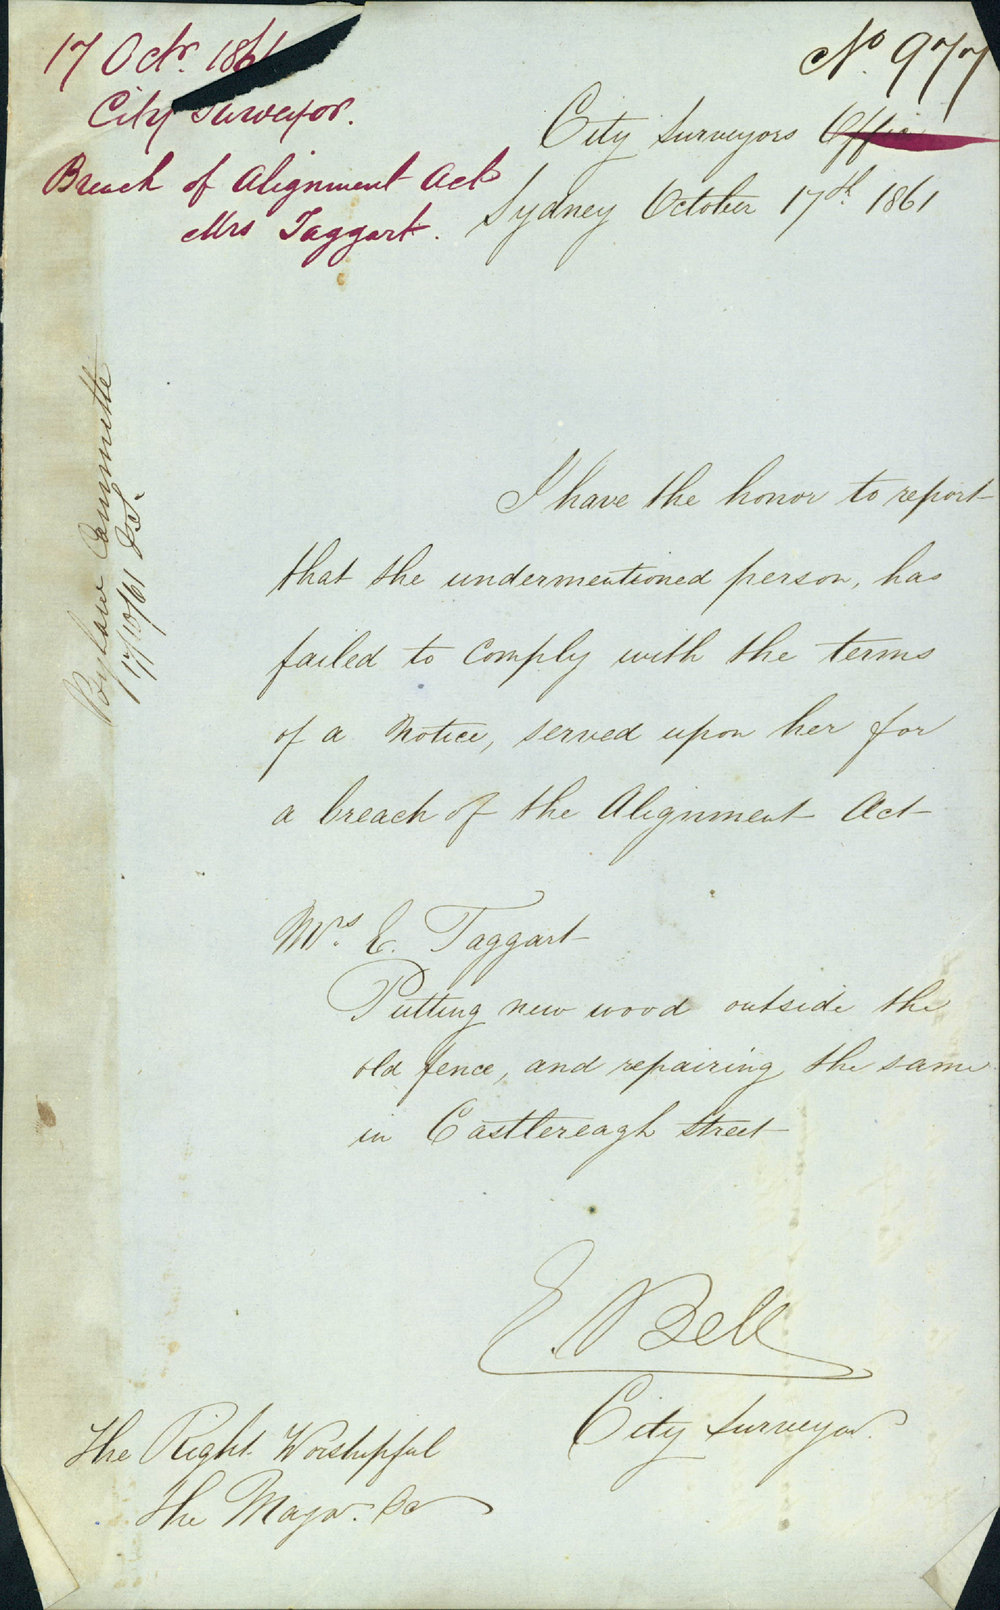 17 Octr. 1861
City Surveyor.
Breach of Alignment Act
Mrs Taggart.
No. 977
City Surveyors Office
Sydney October 17th 1861
Bylaw Committee
17/10/61
I have the honor to report
that the undermentioned person, has
failed to comply with the terms
of a Notice, served upon her for
a breach of the Alignment Act
Mrs. E. Taggart
Putting new wood outside the
old fence, and repairing the same
in Castlereagh Street
E. Bell
City Surveyor.
The Right Worshipful
The Mayor. &c